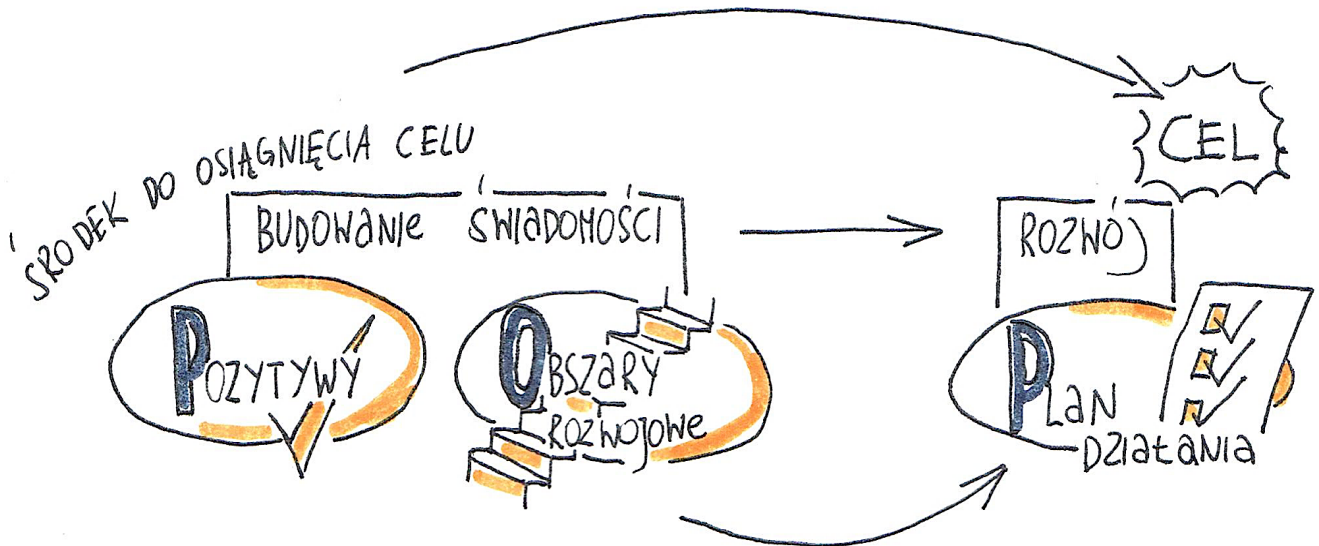 CEL
ŚRODEK DO OSIĄGNIĘCIA CELU
BUDOWANIE ŚWIADOMOŚCI
ROZWÓJ
POZYTYWY
OBSZARY
ROZWOJOWE
PLAN
DZIAŁANIA